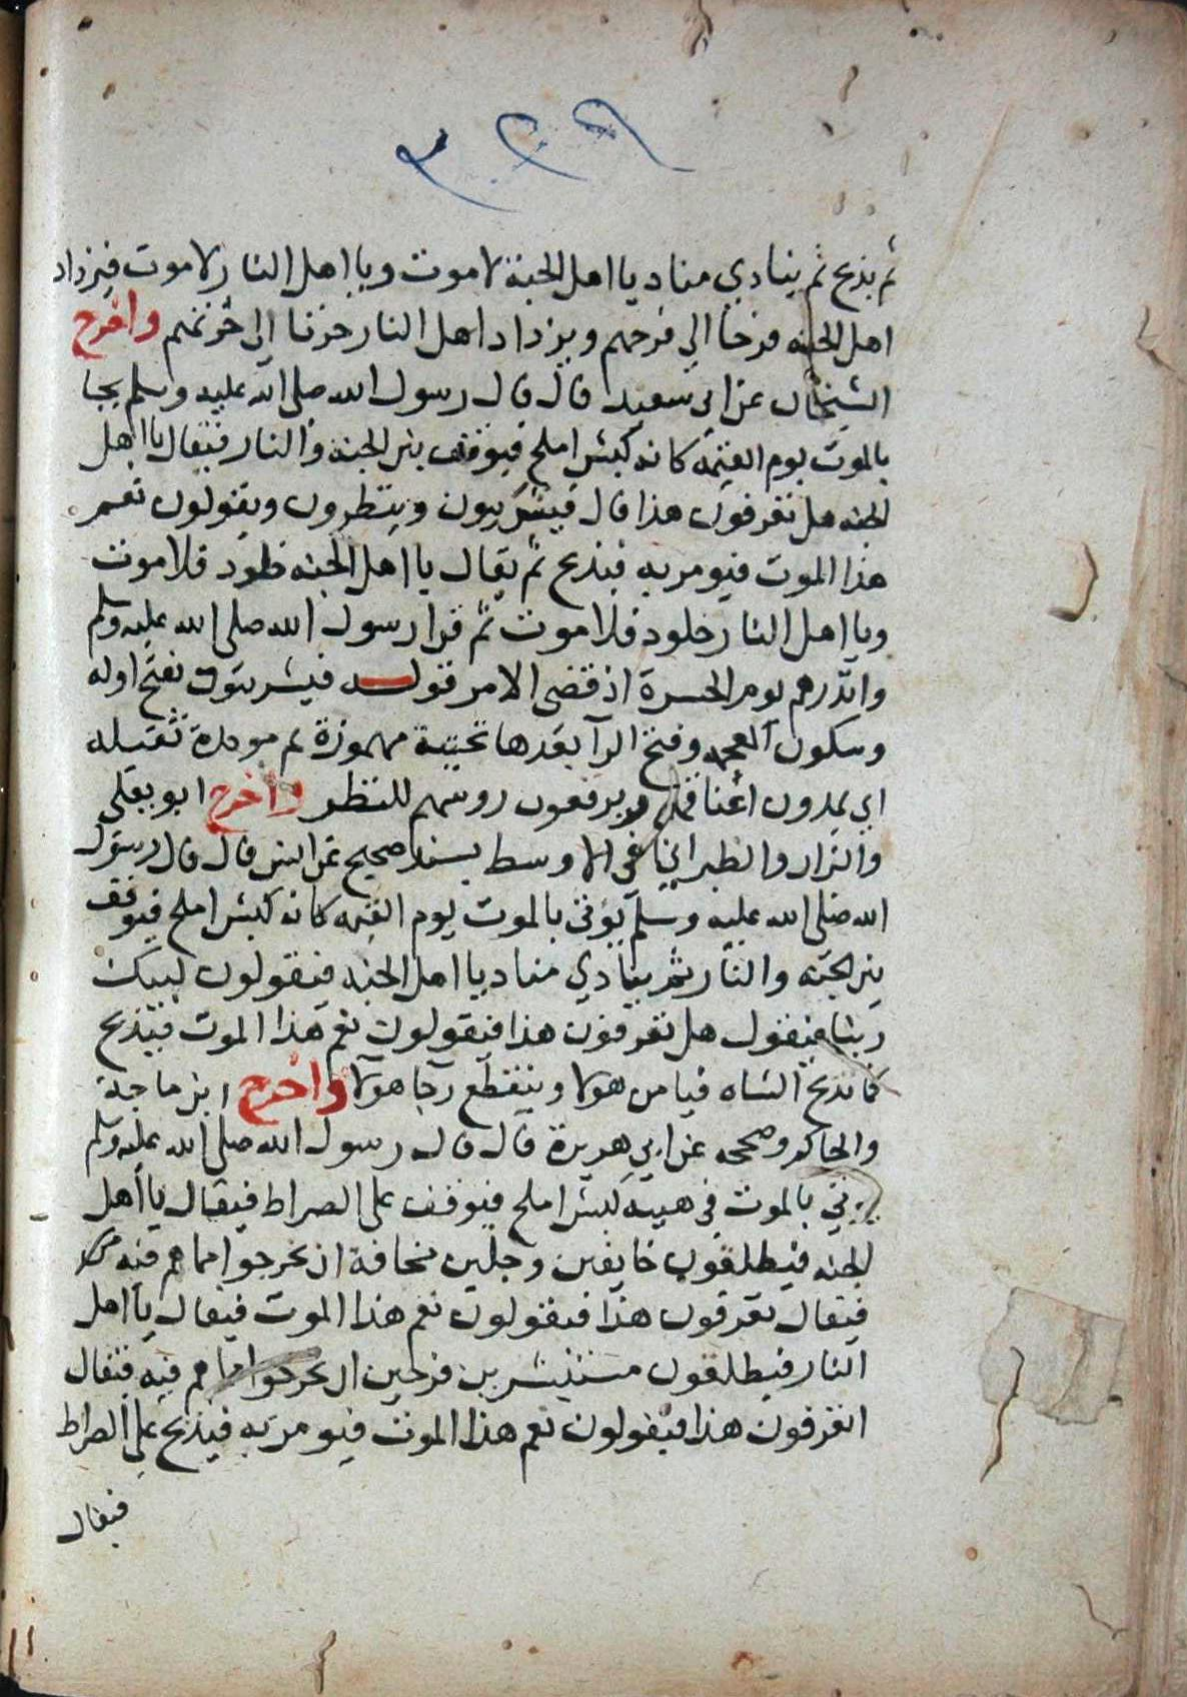 ثم يذبح ثم ينادي مناد يا اهل الجنة لا موت ويا اهل النار لا موت فيزداد
اهل الجنه فرحا الي فرحهم ويزداد اهل النار حزنا الى حزنهم واخرج
الشيخان عن ابي سعيد قال قال رسول الله صلى الله عليه وسلم يجا
بالموت يوم القيمه كانه كبش املح فيوقف بين الجنه والنار فيقال يا اهل
الجنه هل تعرفون هذا قال فيشريبون وينظرون ويقولون نعم
هذا الموت فيومر به فيذبح ثم يقال يا اهل الجنه خلود فلا موت
ويا اهل النار خلود فلا موت ثم قرا رسول الله صلى الله عليه وسلم
وانذرهم يوم الحسرة اذ قضى الامر قوله فيشريبون بفتح اوله
وسكون المعجمه وفتح الرآ بعدها تحتية مهموزة ثم موحدة ثقيله
اي يمدون اعناقهم ويرفعون روسهم للنظر واخرج ابو يعلى
والبزار والطبراني في الاوسط بسند صحيح عن انس قال قال رسول
الله صلى الله عليه وسلم يؤتى بالموت يوم القيمه كانه كبش املح فيوقف
بين الجنه والنار ثم ينادي مناد يا اهل الجنه فيقولون لبيك
ربنا فيقول هل تعرفون هذا فيقولون نعم هذا الموت فيذبح
كما تذبح الشاه فيامن هولا وينقطع رجا هولآ واخرج ابن ماجة
والحاكم وصححه عن ابي هريرة قال قال رسول الله صلى الله عليه وسلم
يوتي بالموت في هيية كبش املح فيوقف على الصراط فيقال يا اهل
الجنه فيطلعون خايفين وجلين مخافة ان يخرجوا مما هم فيه
فيقال تعرفون هذا فيقولون نعم هذا الموت فيقال يا اهل
النار فيطلعون مستبشرين فرحين ان يخرجوا مما هم فيه فيقال
اتعرفون هذا فيقولون نعم هذا الموت فيومر به فيذبح على الصراط
فيقال